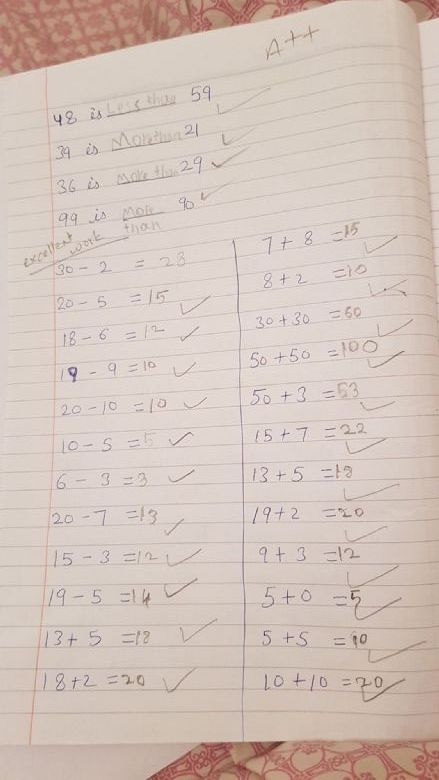 A++
48 is Less than 59
39 is More than 21
36 is More than 29
99 is More than 90
excellent work
30 - 2 = 28
20 - 5 = 15
18 - 6 = 12
19 - 9 = 10
20 - 10 = 10
10 - 5 = 5
6 - 3 = 3
20 - 7 = 13
15 - 3 = 12
19 - 5 = 14
13 + 5 = 18
18 + 2 = 20
7 + 8 = 15
8 + 2 = 10
30 + 30 = 60
50 + 50 = 100
50 + 3 = 53
15 + 7 = 22
13 + 5 = 18
19 + 2 = 20
9 + 3 = 12
5 + 0 = 5
5 + 5 = 10
10 + 10 = 20